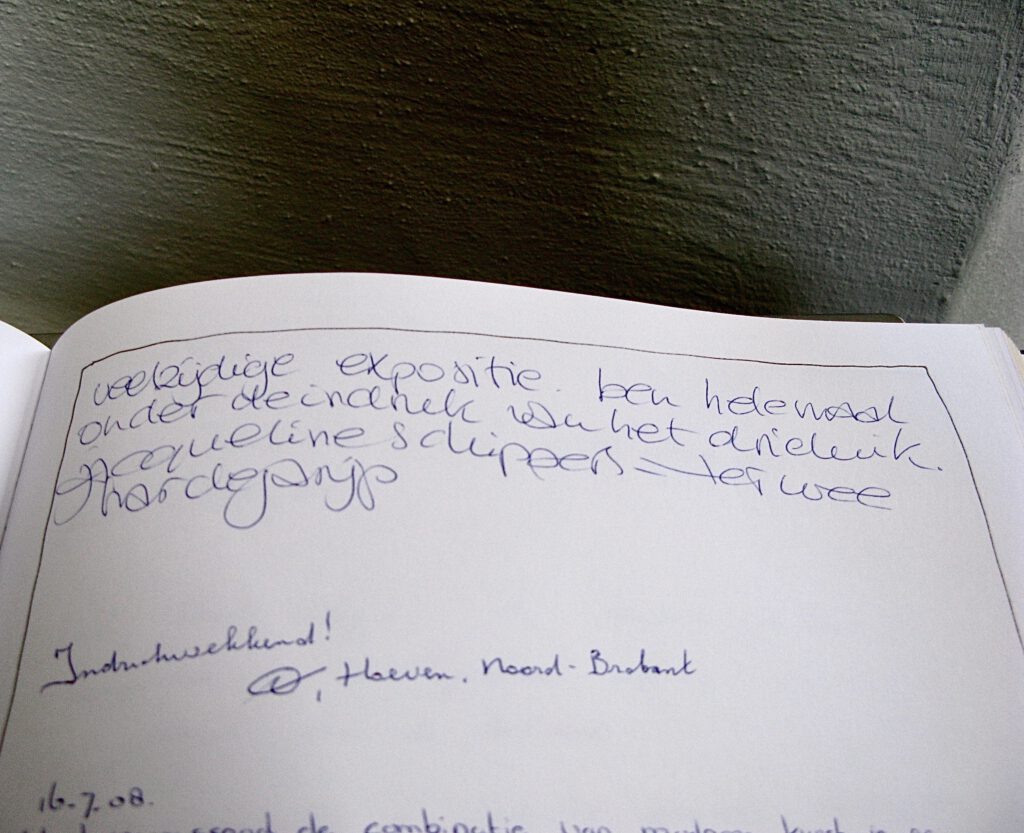 veelzijdige expositie. ben helemaal
onder de indruk van het drieluik.
Jacqueline schippers = terwee
hardegarijp
Indrukwekkend!
, Hoeven, Noord-Brabant
16.7.08.
de combinatie van